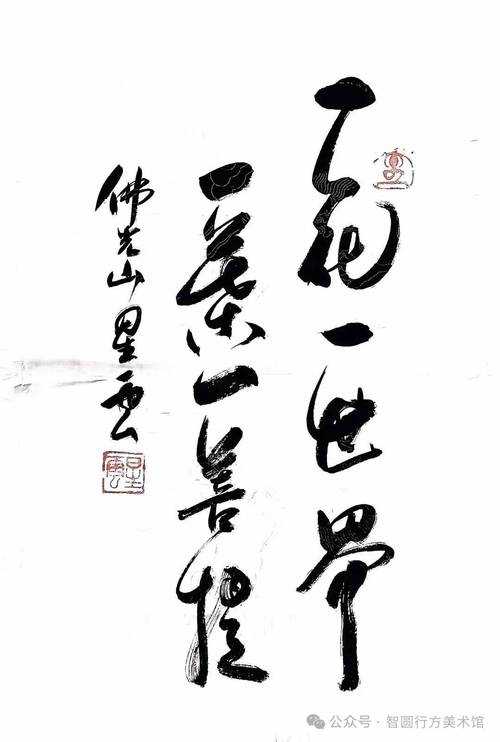 一花一世界
一葉一菩提
佛光山星雲
星雲
公众号·智圆行方美术馆